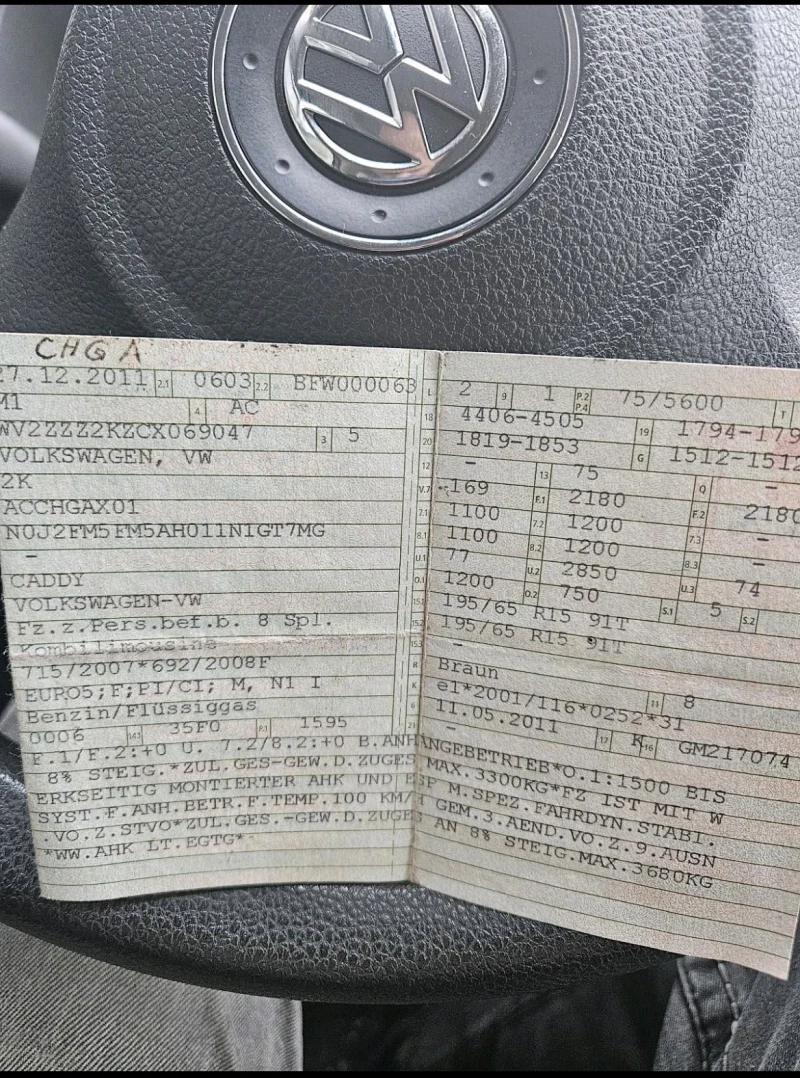 CHGA
27.12.2011 2.1 0603 2.2 BFW000063
M1 4 AC
WV2ZZZ2KZCX069047 3 5
VOLKSWAGEN, VW
2K
ACCHGAX01
N0J2FM5FM5AH011N1GT7MG
-
CADDY
VOLKSWAGEN-VW
Fz.z.Pers.bef.b. 8 Spl.
Kombilimousine
715/2007*692/2008F
EURO5;F;PI/CI; M, N1 I
Benzin/Flüssiggas
0006 14.1 35F0 P.1 1595
L 2 9 1 P.2 P.4 75/5600 T
18 4406-4505 19 1794-179
20 1819-1853 G 1512-1512
12 - 13 75 Q -
V.7 169 F.1 2180 F.2 2180
7.1 1100 7.2 1200 7.3 -
8.1 1100 8.2 1200 8.3 -
U.1 77 U.2 2850 U.3 74
O.1 1200 O.2 750 S.1 5 S.2
15.1 195/65 R15 91T
15.2 195/65 R15 91T
15.3 -
R Braun 11 8
K e1*2001/116*0252*31
6 11.05.2011 17 K 16 GM217074
21 -
F.1/F.2:+0 U. 7.2/8.2:+0 B.ANHANGEBETRIEB*O.1:1500 BIS
8% STEIG.*ZUL.GES-GEW.D.ZUGES MAX.3300KG*FZ IST MIT W
ERKSEITIG MONTIERTER AHK UND ESP M.SPEZ.FAHRDYN.STABI.
SYST.F.ANH.BETR.F.TEMP.100 KM/H GEM.3.AEND.VO.Z.9.AUSN
.VO.Z.STVO*ZUL.GES.-GEW.D.ZUGES AN 8% STEIG.MAX.3680KG
*WW.AHK LT.EGTG*